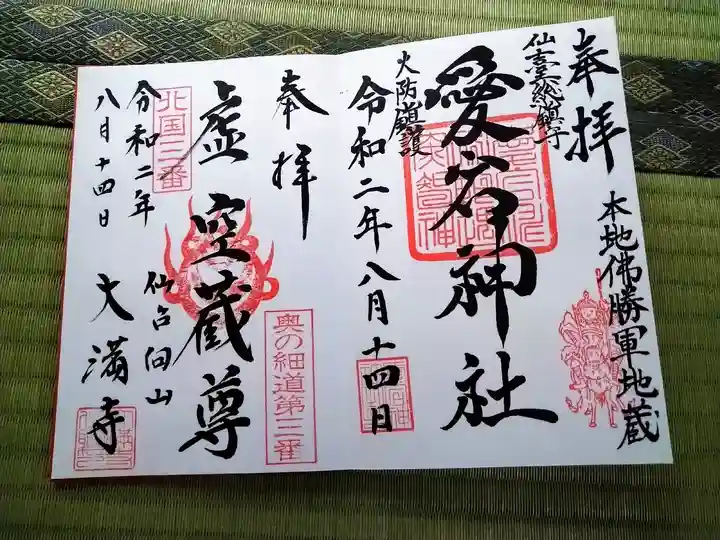 奉拝
本地佛勝軍地蔵
仙臺総鎮守
愛宕神社
火防鎮護
令和二年八月十四日
奉拝
奥の細道第三番
虚空蔵尊
北国三番
令和二年
仙台向山
八月十四日
大満寺